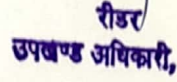 रीडर
उपखण्ड अधिकारी,